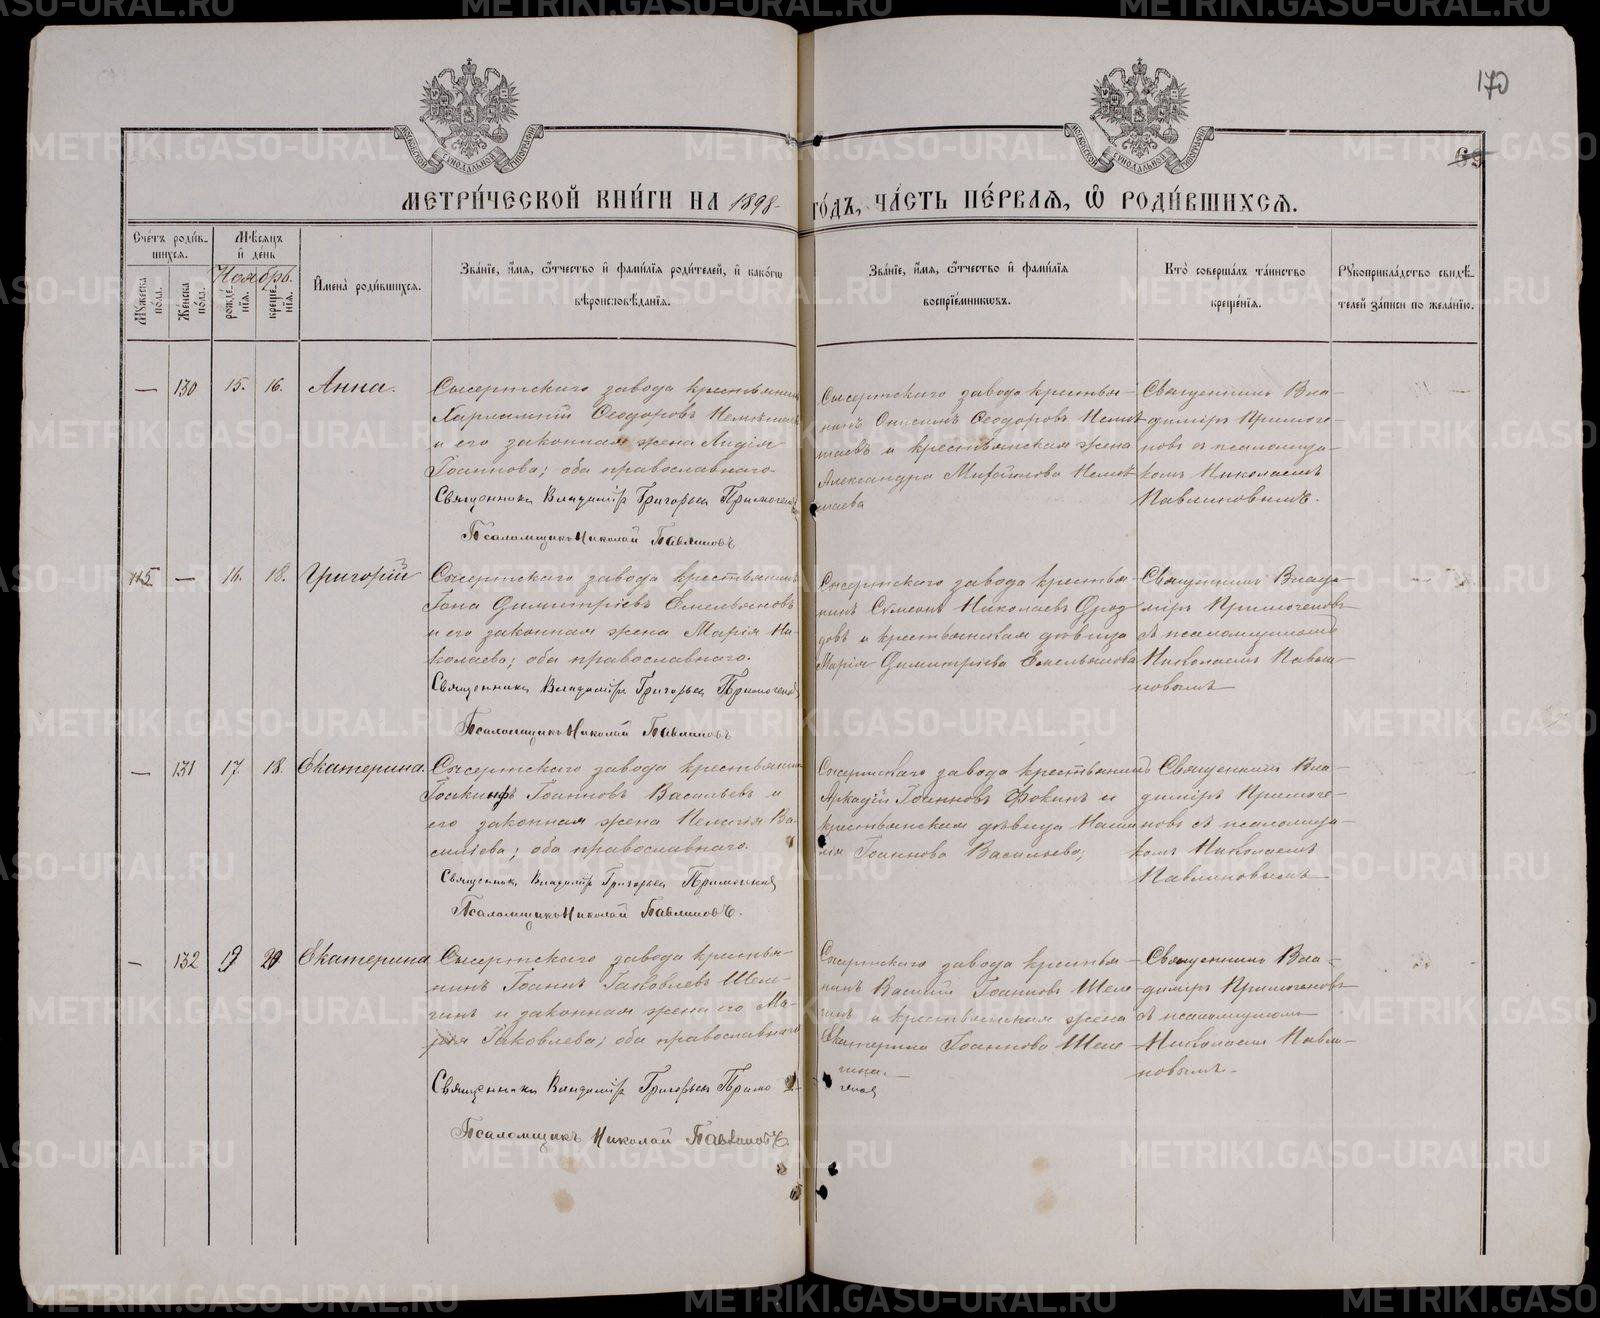 170
69
МЕТРИ́ЧЕСКОЙ КНИ́ГИ НА 1898 ГО́ДЪ, ЧА́СТЬ ПЕ́РВАЯ, Ѡ РОДИ́ВШИХСЯ.
Сче́тъ роди́в-
шихся.
Мѣ́сяцъ
и҆ де́нь
Ноябрь.
Му́жеска по́ла.
Же́нска по́ла.
рожде́нїя.
креще́нїя.
И҆мена̀ роди́вшихся.
Зва́нїе, и҆́мя, ѻ҆́тчество и҆ фами́лїя роди́телей, и҆ како́гѡ
вѣроисповѣ́данїя.
Зва́нїе, и҆́мя, ѻ҆́тчество и҆ фами́лїя
воспрїе́мниковъ.
Кто̀ соверша́лъ та́инство
креще́нїя.
Рꙋкоприкла́дство свидѣ́-
телей за́писи по жела́нїю.
— 130 15. 16. Анна.
Сысертскаго завода крестьянинъ
Харлампій Ѳеодоровъ
и его законная жена Лидія
Іоаннова; оба православнаго.
Священникъ Владиміръ Григорьев
Псаломщикъ Николай Павлиновъ
Сысертскаго завода крестья-
нинъ Онисимъ Ѳеодоровъ
и крестьянская жена
Александра
Священникъ Вла-
димiръ
новъ съ псаломщи-
комъ Николаемъ
Павлиновымъ.
115 — 16. 18. Григорій
Сысертскаго завода крестьянинъ
Іона Димитріевъ Емельяновъ
и его законная жена Марія Ни-
колаева; оба православнаго.
Священникъ Владиміръ Григорьев
Псаломщикъ Николай Павлиновъ
Сысертскаго завода крестья-
нинъ Симеонъ Николаевъ Дроз-
довъ и крестьянская дѣвица
Марія Димитріева Емельянова
Священникъ Влади-
міръ
съ псаломщикомъ
Николаемъ Павли-
новымъ
— 131 17. 18. Екатерина.
Сысертскаго завода крестьянинъ
Іоакинфъ Іоанновъ Васильевъ и
его законная жена Пелагія Ва-
силіева; оба православнаго.
Священникъ Владиміръ Григорьев
Псаломщикъ Николай Павлиновъ.
Сысертскаго завода крестьянинъ
Аркадій Іоанновъ Фокинъ и
крестьянская дѣвица
Іоаннова Васильева,
Священникъ Вла-
диміръ
новъ съ псаломщи-
комъ Николаемъ
Павлиновымъ
— 132 19 20 Екатерина
Сысертскаго завода крестья-
нинъ Іоаннъ Іаковлевъ Шеле-
гинъ и законная жена его Ма-
рія Іаковлева; оба православнаго
Священникъ Владиміръ Григорьев
Псаломщикъ Николай Павлиновъ.
Сысертскаго завода крестья-
нинъ Василій Іоанновъ Шеле-
гинъ и крестьянская жена
Екатерина Іоаннова Шеле-
гина.
Священникъ Вла-
диміръ
съ псаломщикомъ
Николаемъ Павли-
новымъ.
METRIKI.GASO-URAL.RU